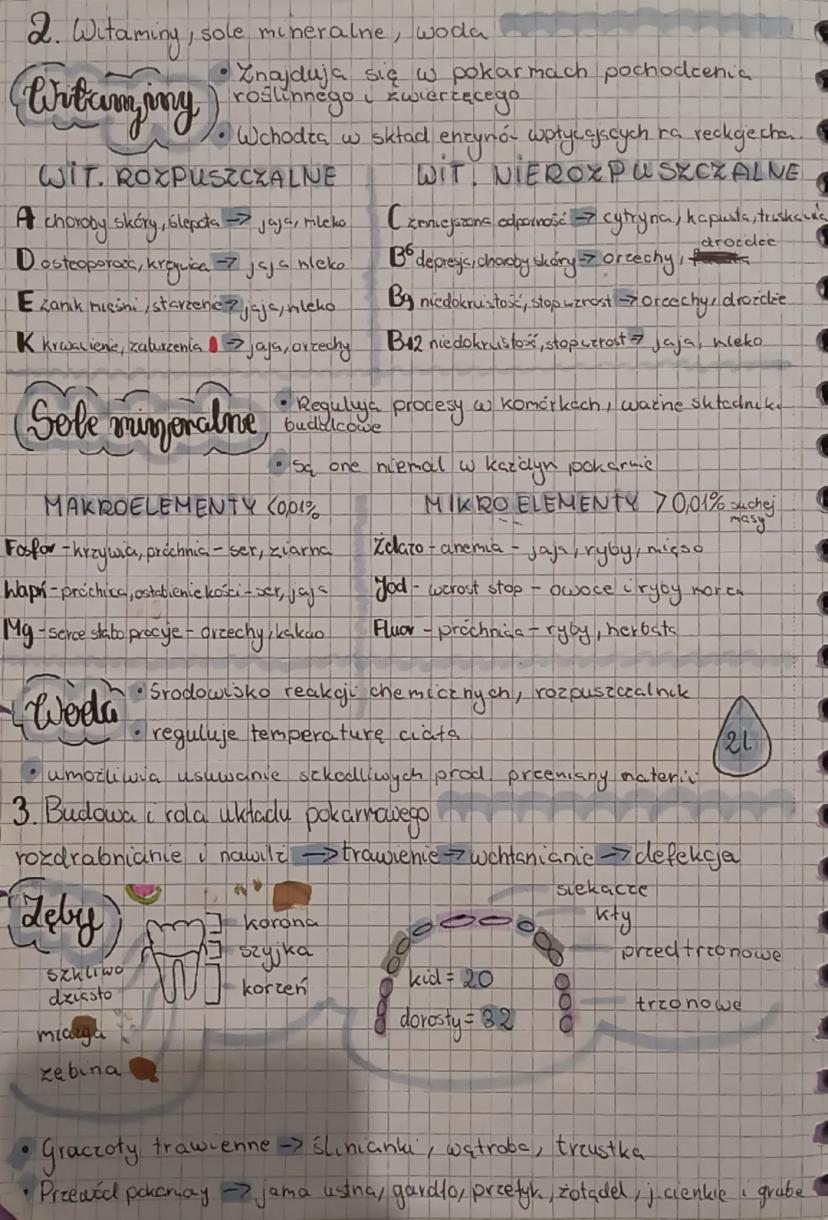 2. Witaminy, sole mineralne, woda
Witaminy
• Znajdują się w pokarmach pochodzenia
roślinnego i zwierzęcego
• Wchodzą w skład enzymów wpływających na
WIT. ROZPUSZCZALNE
WIT. NIEROZPUSZCZALNE
A choroby skóry, ślepota → jaja, mleko
C zmniejszona odporność → cytryna, kapusta, truskawka
D osteoporoza, krzywica → jaja mleko
B6 depresja, choroby skóry → orzechy, drożdże
E zanik mięśni, starzenie → jaja, mleko
B9 niedokrwistość, stop wzrost → orzechy, drożdże
K krwawienie, zaburzenia → jaja, orzechy
B12 niedokrwistość, stop wzrost → jaja, mleko
Sole mineralne
• Regulują procesy w komórkach, ważne składnik.
budulcowe
• są one niemal w każdym pokarmie
MAKROELEMENTY <0,01%
MIKROELEMENTY >0,01% suchej
masy
Fosfor - krzywia, próchnia - ser, ziarna
Żelazo - anemia - jaja, ryby, mięso
Wapń - próchnica, osłabienie kości - ser, jaja
Jod - wzrost stop - owoce i ryby morza
Mg - serce słabo pracuje - orzechy, kakao
Fluor - próchnica - ryby, herbata
Woda
• środowisko reakcji chemicznych, rozpuszczalnik
• reguluje temperaturę ciała
2l
• umożliwia usuwanie szkodliwych prod. przemiany materii
3. Budowa i rola układu pokarmowego
rozdrabnianie i nawilż → trawienie → wchłanianie → defekcja
Zęby
korona
szyjka
korzeń
szkliwo
dziąsło
miazga
zębina
siekacze
kły
przedtrzonowe
trzonowe
kid = 20
dorosły = 32
• Gruczoły trawienne → ślinianki, wątroba, trzustka
• Przewód pokarmowy → jama ustna, gardło, przełyk, żołądek, j. cienkie i grube